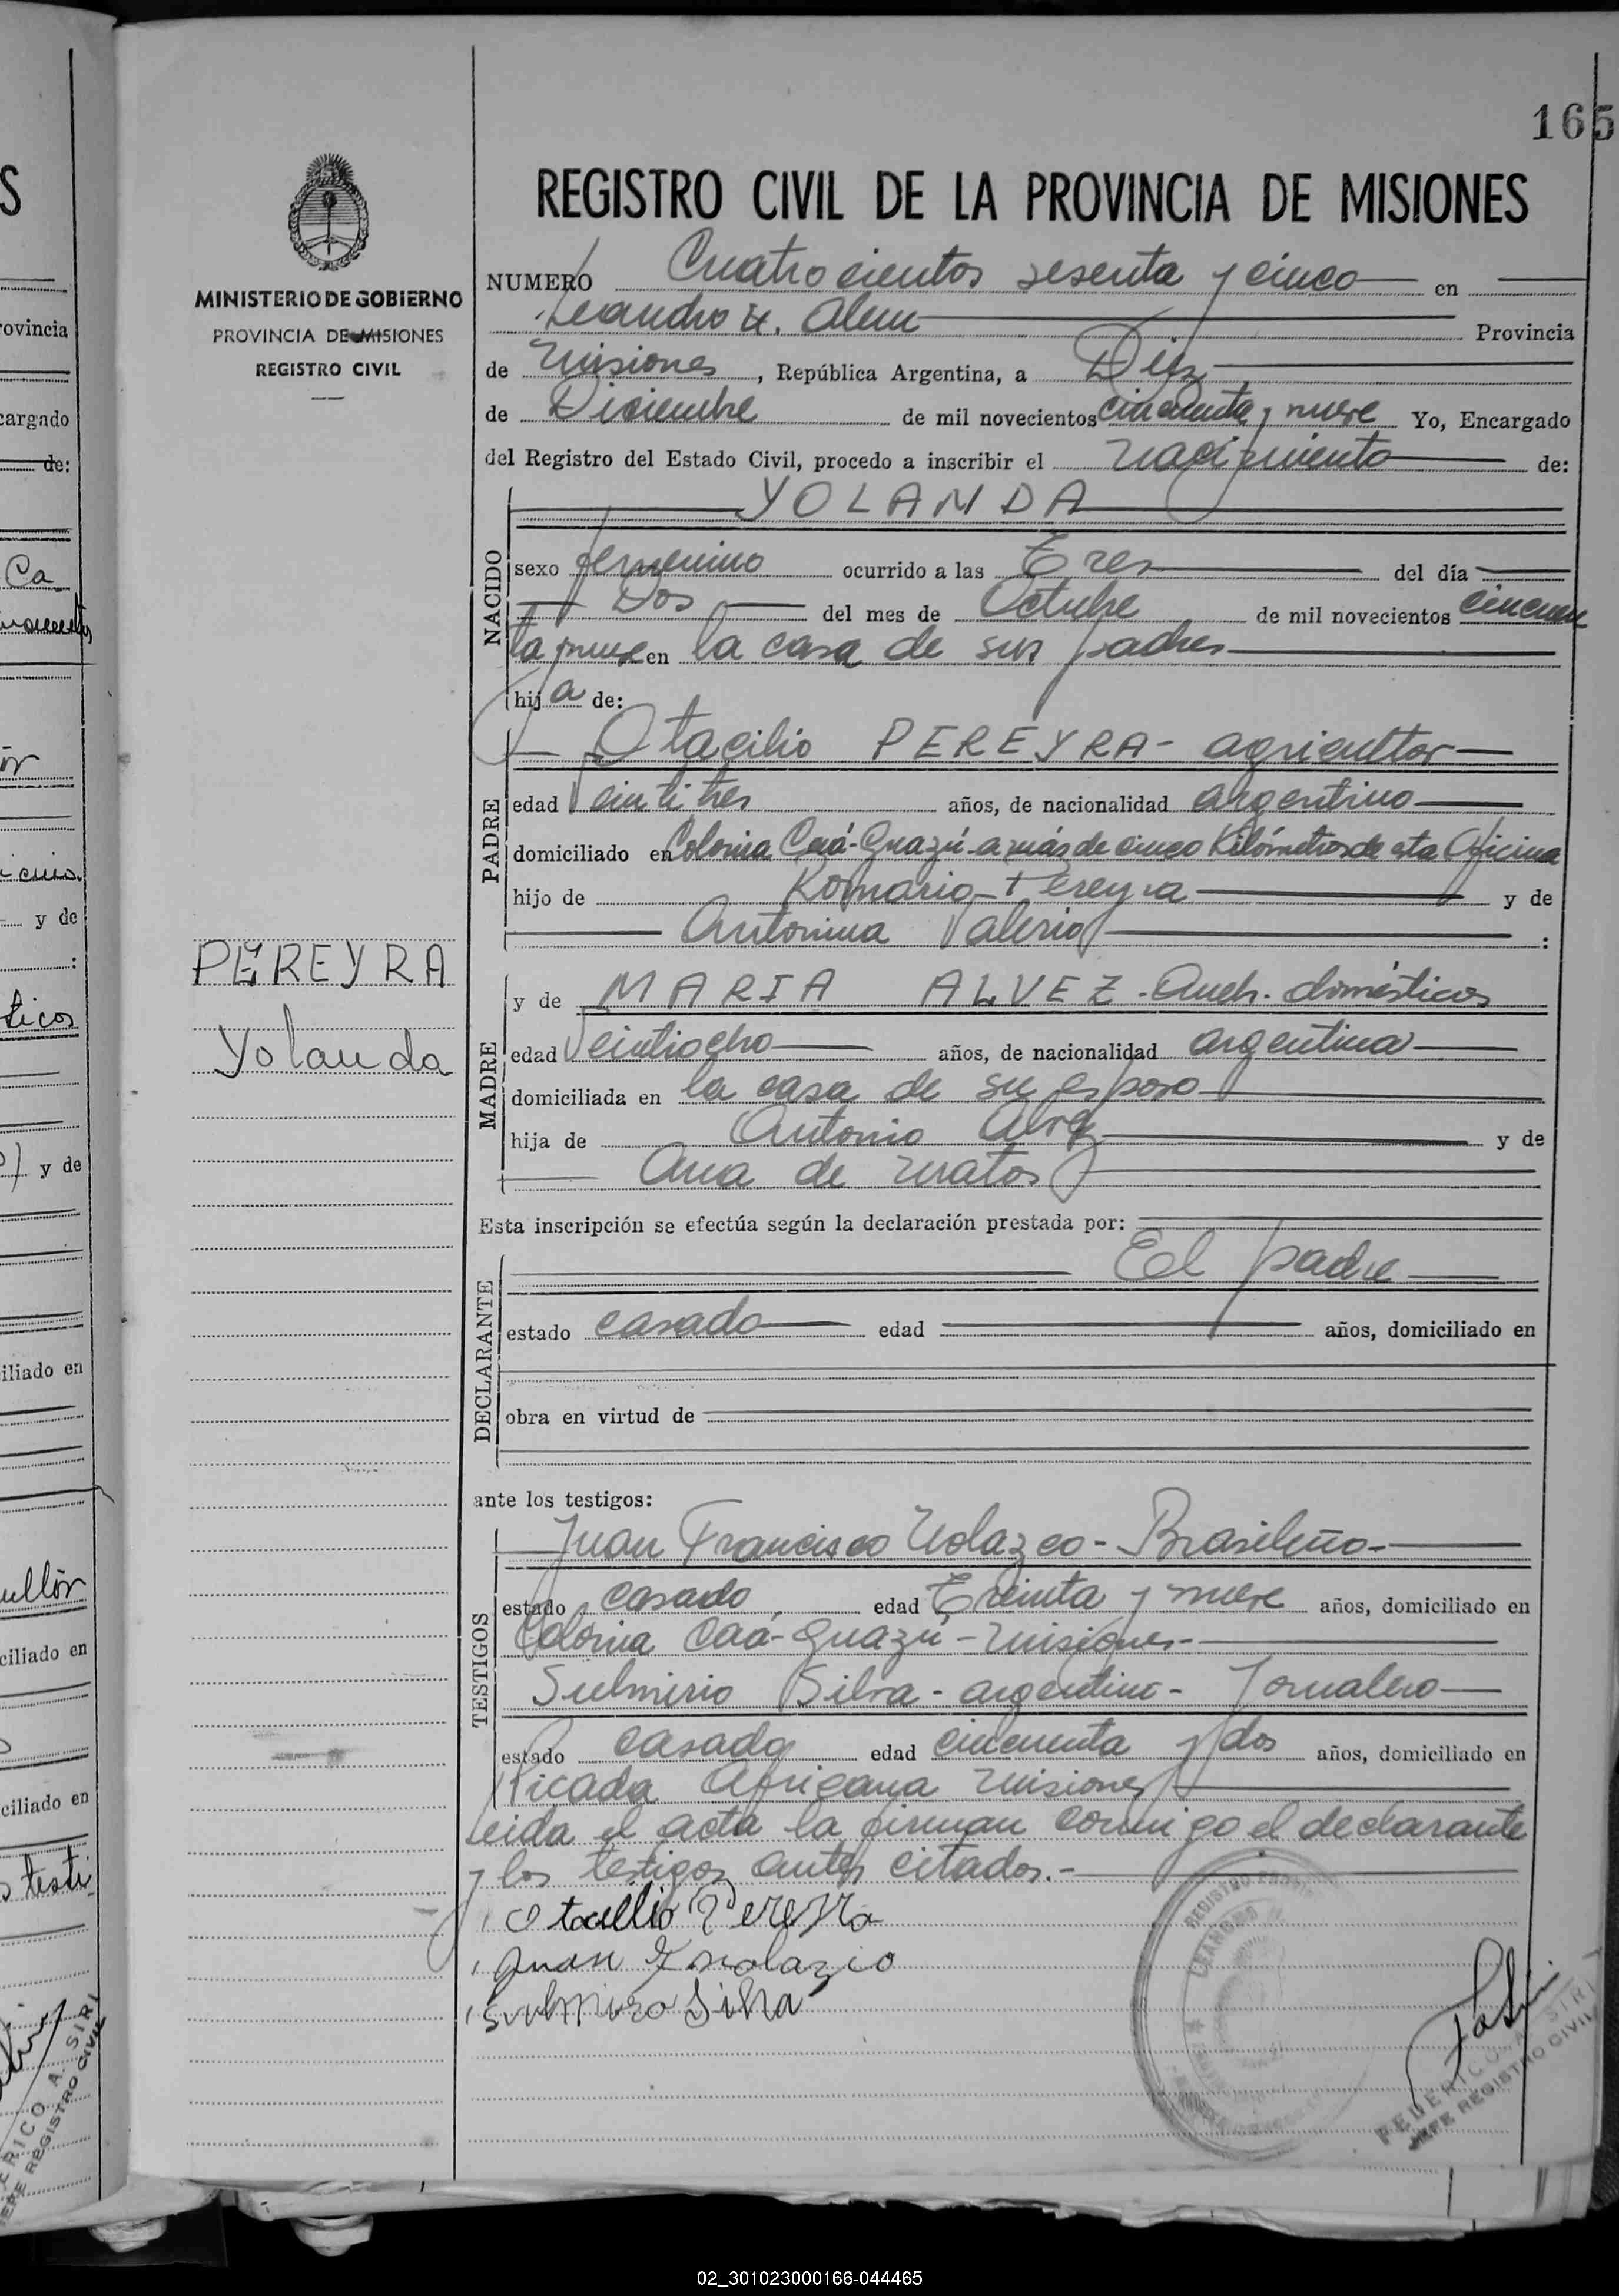 165
REGISTRO CIVIL DE LA PROVINCIA DE MISIONES
MINISTERIO DE GOBIERNO
PROVINCIA DE MISIONES
REGISTRO CIVIL
NUMERO Cuatrocientos sesenta y cinco en
Leandro N. Alem Provincia
de Misiones, República Argentina, a Diez
de Diciembre de mil novecientos cincuenta y nueve Yo, Encargado
del Registro del Estado Civil, procedo a inscribir el nacimiento de:
NACIDO
YOLANDA
sexo femenino ocurrido a las Tres del día
Dos del mes de Octubre de mil novecientos cincuen
ta y nueve en la casa de sus padres
hija de:
PADRE
Otacilio PEREYRA - agricultor
edad Veintitres años, de nacionalidad argentino
domiciliado en Colonia Caá-Guazú a más de cinco Kilómetros de esta Oficina
hijo de Romario Pereyra y de
Antonina Valerio :
PEREYRA
Yolanda
MADRE
y de MARIA ALVEZ - Queh. domésticos
edad Veintiocho años, de nacionalidad argentina
domiciliada en la casa de su esposo
hija de Antonio Alvez y de
Ana de Matos
Esta inscripción se efectúa según la declaración prestada por:
DECLARANTE
El padre
estado casado edad años, domiciliado en
obra en virtud de
ante los testigos:
TESTIGOS
Juan Francisco Nolazco - Brasileño -
estado casado, edad Treinta y nueve años, domiciliado en
Colonia Caá-Guazú - Misiones -
Sulmirio Silva - argentino - Jornalero
estado casado edad cincuenta y dos años, domiciliado en
Picada Africana Misiones
Leida el acta la firman conmigo el declarante
y los testigos antes citados.-
Juan F nolazio
Silva
FEDERICO A. SIRI
JEFE REGISTRO CIVIL
02_301023000166-044465